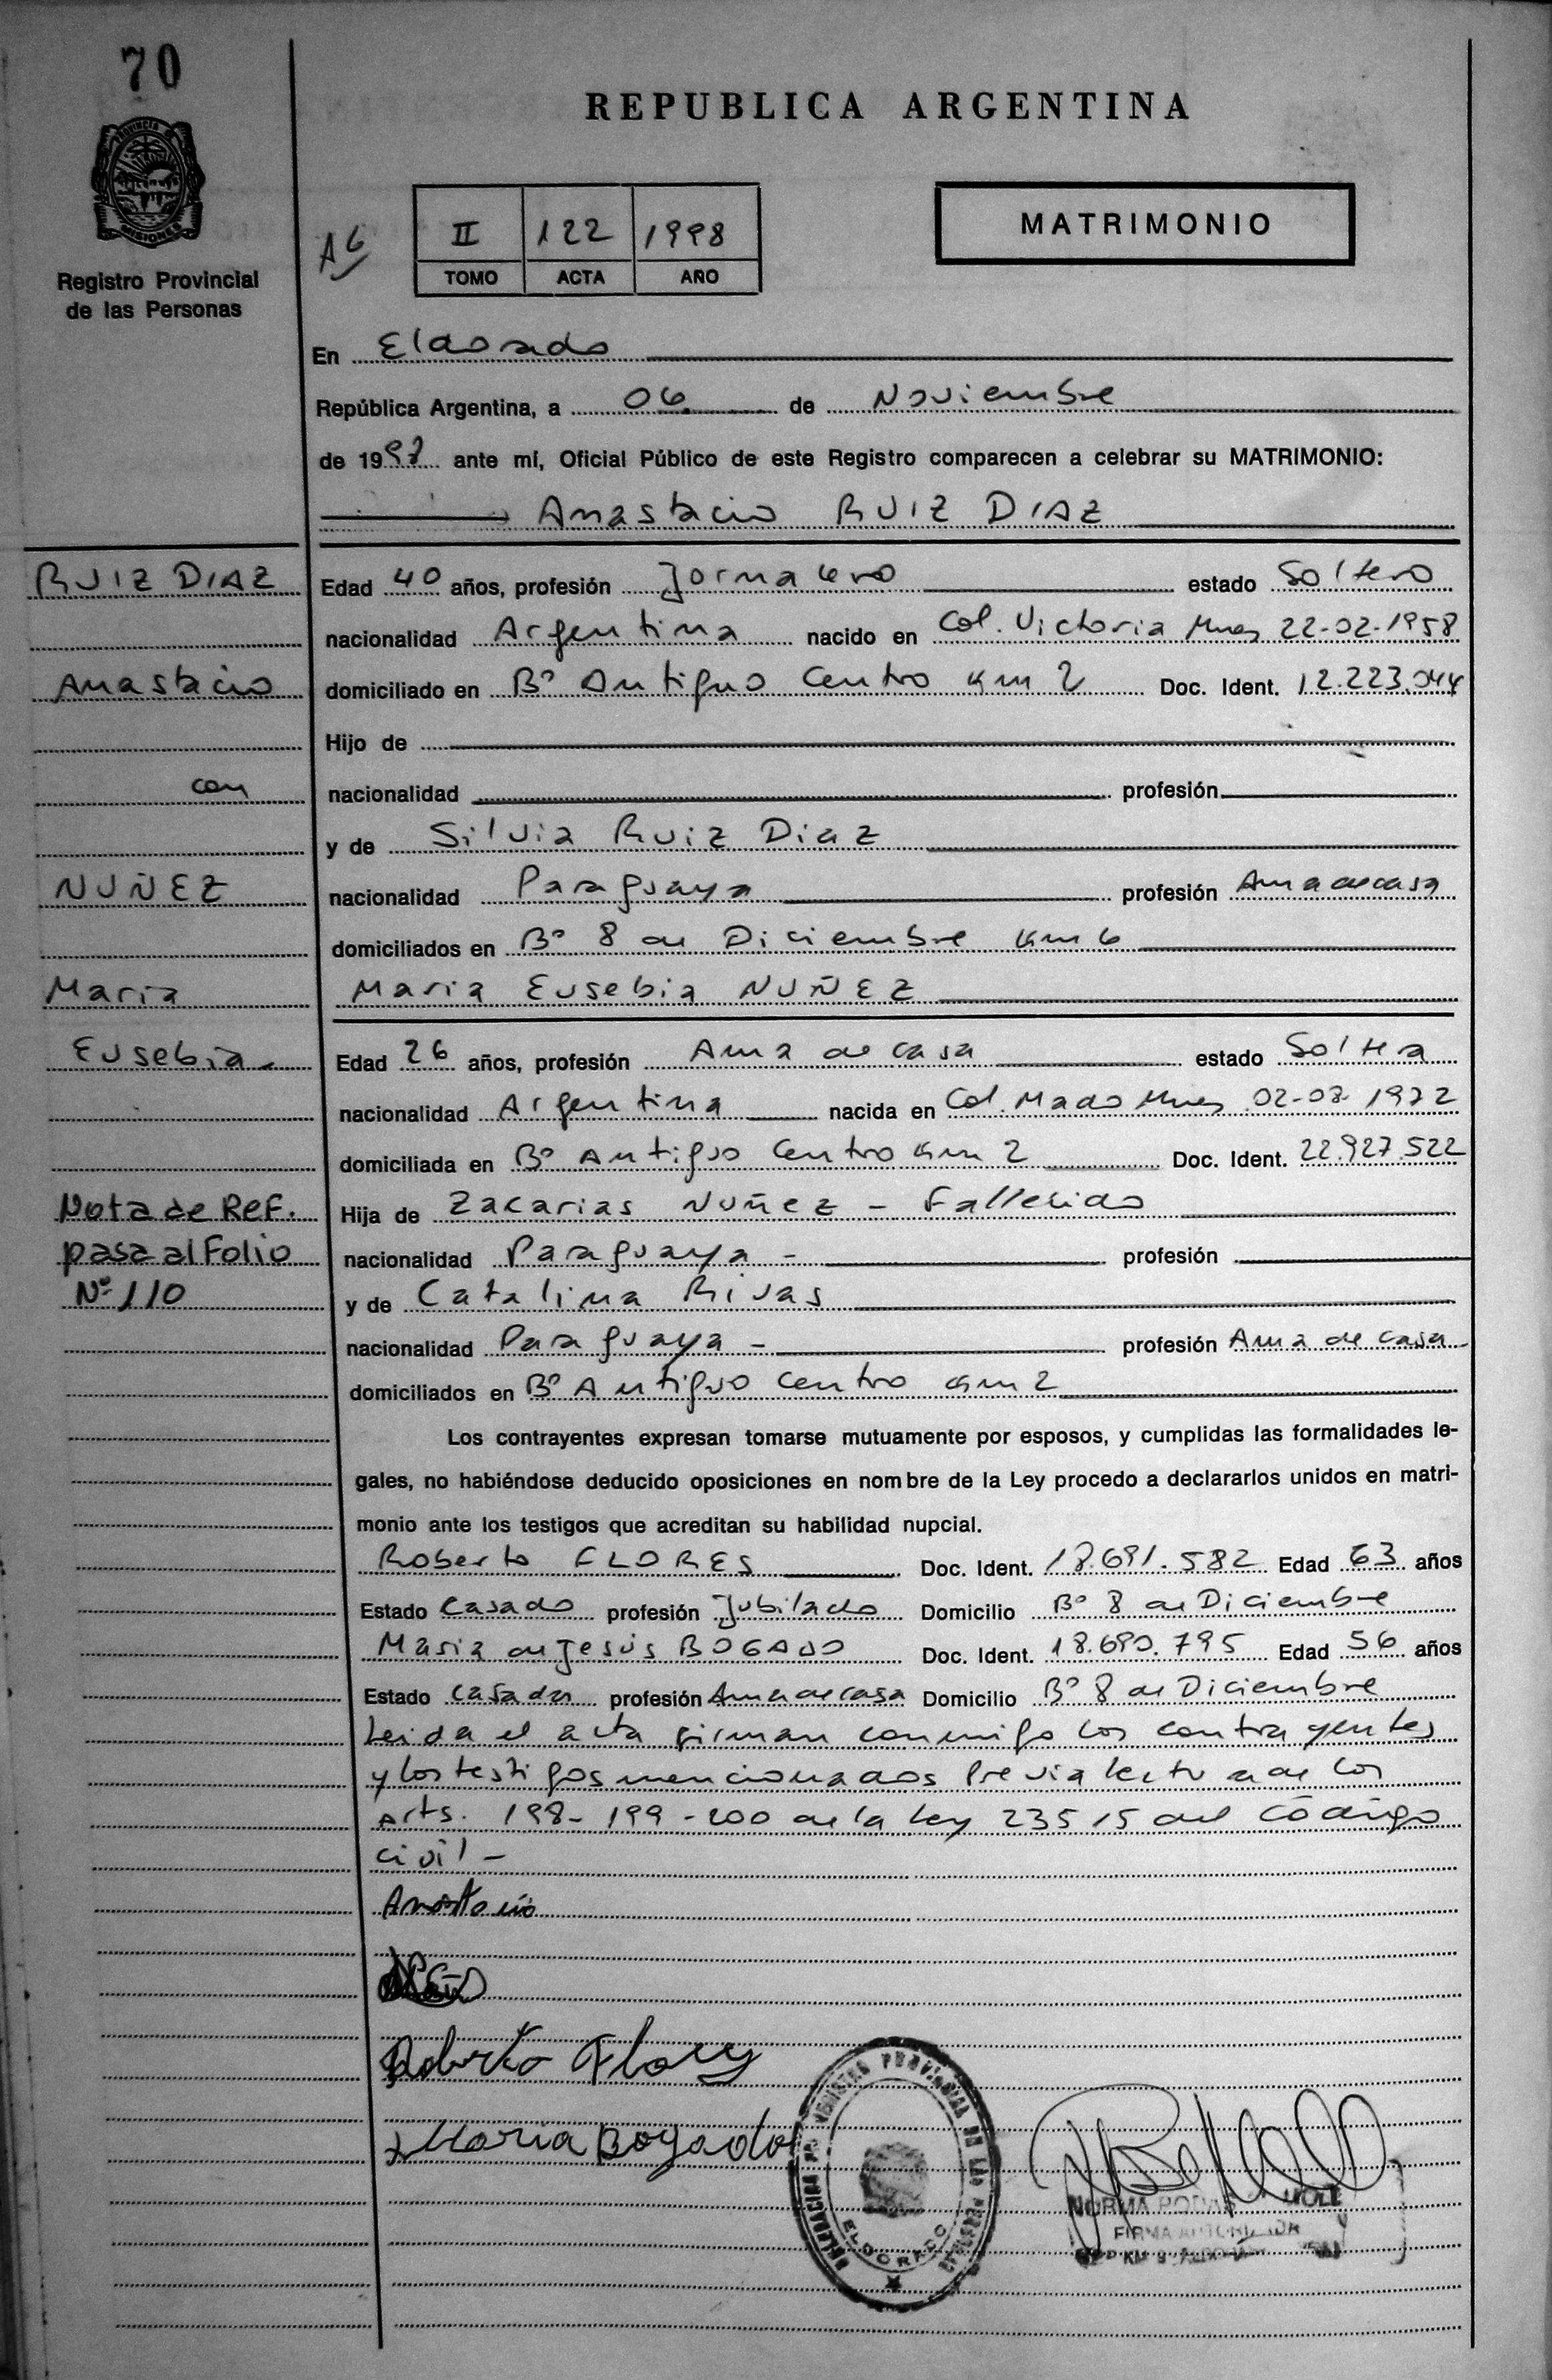 70
REPUBLICA ARGENTINA
PROVINCIA DE
MISIONES
Registro Provincial
de las Personas
II 122 1998
TOMO ACTA AÑO
MATRIMONIO
En Eldorado
República Argentina, a 06 de Noviembre
de 1998 ante mí, Oficial Público de este Registro comparecen a celebrar su MATRIMONIO:
Anastacio RUIZ DIAZ
RUIZ DIAZ
Anastacio
con
NUÑEZ
Maria
Eusebia
Nota de Ref.
pasa al Folio
Nº 110
Edad 40 años, profesión Jornalero estado Soltero
nacionalidad Argentina nacido en Col. Victoria Mnes 22-02-1958
domiciliado en Bº Antiguo Centro Km 2 Doc. Ident. 12.223.044
Hijo de
nacionalidad profesión
y de Silvia Ruiz Diaz
nacionalidad Paraguaya profesión Ama de casa
domiciliados en Bº 8 de Diciembre Km 6
Maria Eusebia NUÑEZ
Edad 26 años, profesión Ama de casa estado Soltera
nacionalidad Argentina nacida en Col. Mado Mnes 1972
domiciliada en Bº Antiguo Centro Km 2 Doc. Ident. 22.927.522
Hija de Zacarias Nuñez - Fallecido
nacionalidad Paraguaya - profesión
y de Catalina Rivas
nacionalidad Paraguaya - profesión Ama de casa
domiciliados en Bº Antiguo Centro Km 2
Los contrayentes expresan tomarse mutuamente por esposos, y cumplidas las formalidades le-
gales, no habiéndose deducido oposiciones en nombre de la Ley procedo a declararlos unidos en matri-
monio ante los testigos que acreditan su habilidad nupcial.
Roberto FLORES Doc. Ident. 18.691.582 Edad 63 años
Estado Casado profesión Jubilado Domicilio Bº 8 de Diciembre
Maria de Jesús BOGADO Doc. Ident. 18.690.795 Edad 56 años
Estado Casada profesión Ama de casa Domicilio Bº 8 de Diciembre
Leida el acta firman conmigo los contrayentes
y los testigos mencionados Previa lectura de los
Arts. 198- 199 -200 de la Ley 23515 del Código
civil -
Anastacio
Roberto Flores
Maria Bogado
DELEGACION DEL REGISTRO PROVINCIAL DE LAS PERSONAS
ELDORADO
NORMA RODAS
FIRMA AUTORIZADA